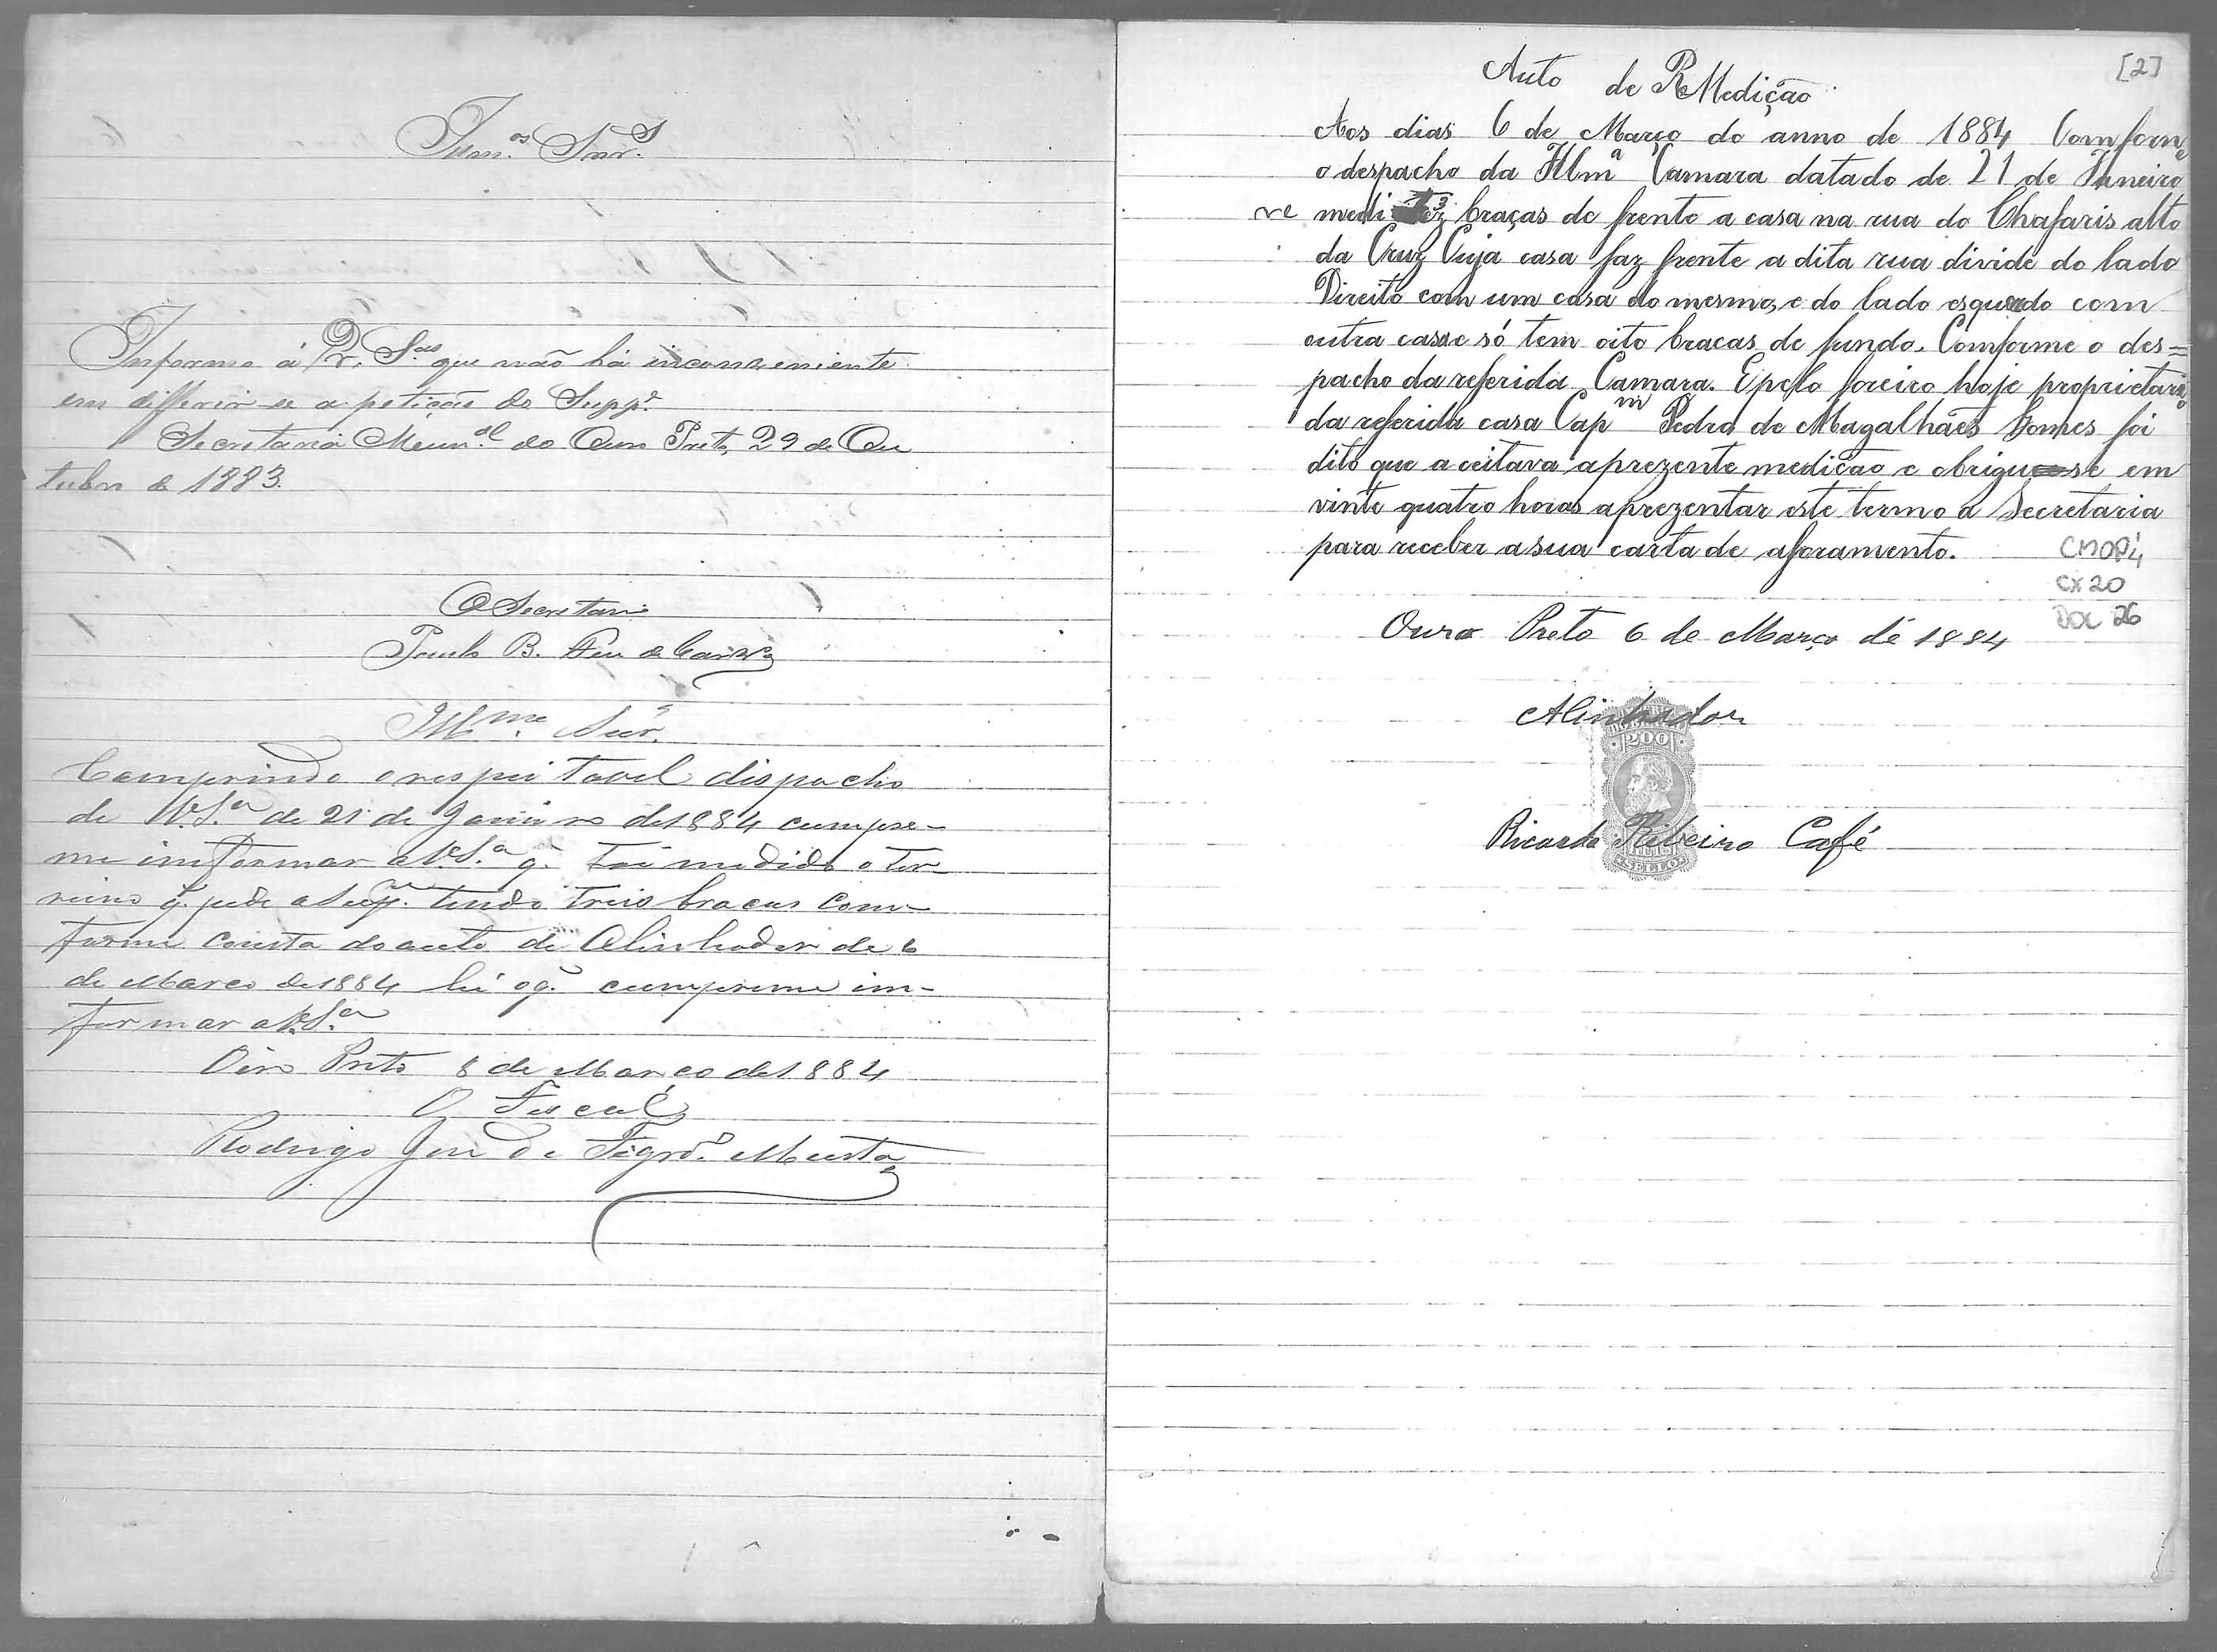 Illm.os Snr.s
Informo á V. S.as que não há inconveniente
em differir-se a petição do Supp.e
Secretaria Mun.al do Ouro Preto, 29 de Ou
tubro de 1883.
O Secretario
Paulo B.
Illm.os Snr.s
Comprindo o respeitavel dispacho
de V.S.a de 21 de Janeiro de 1884 cumpre-
me imformar a V.S.a q. foi medido o ter-
reino q. pede a Sup.e tendo treis bracas com-
forme consta do auto do Alinhador de 6
de Marco de 1884 hé o q. cumpreme im-
formar a V.S.a
Oiro Preto 8 de Março de 1884
O Fiscal
Rodrigo José de Figrd.o Murta
[2]
Auto de ReMedição
Aos dias 6 de Março do anno de 1884 Comforme
o despacho da Illm.a Camara datado de 21 de Janeiro
re medi 3 braças de frente a casa na rua do Chafaris alto
da Cruz Cuja casa faz frente a dita rua divide do lado
Direito com um casa do mesmo, e do lado esquerdo com
outra casa e só tem oito bracas de fundo. Comforme o des=
pacho da referida Camara. E pelo foreiro hoje proprietario
da referida casa Cap.m Pedro de Magalhães Gomes foi
dito que aceitava aprezente medicão e obriguese em
vinte quatro horas aprezentar este termo a Secretaria
para receber a sua carta de aforamento.
CMOP
CX 20
DOC 26
Ouro Preto 6 de Março de 1884
Alinhador
200
Ricardo Ribeiro Café
SELLO